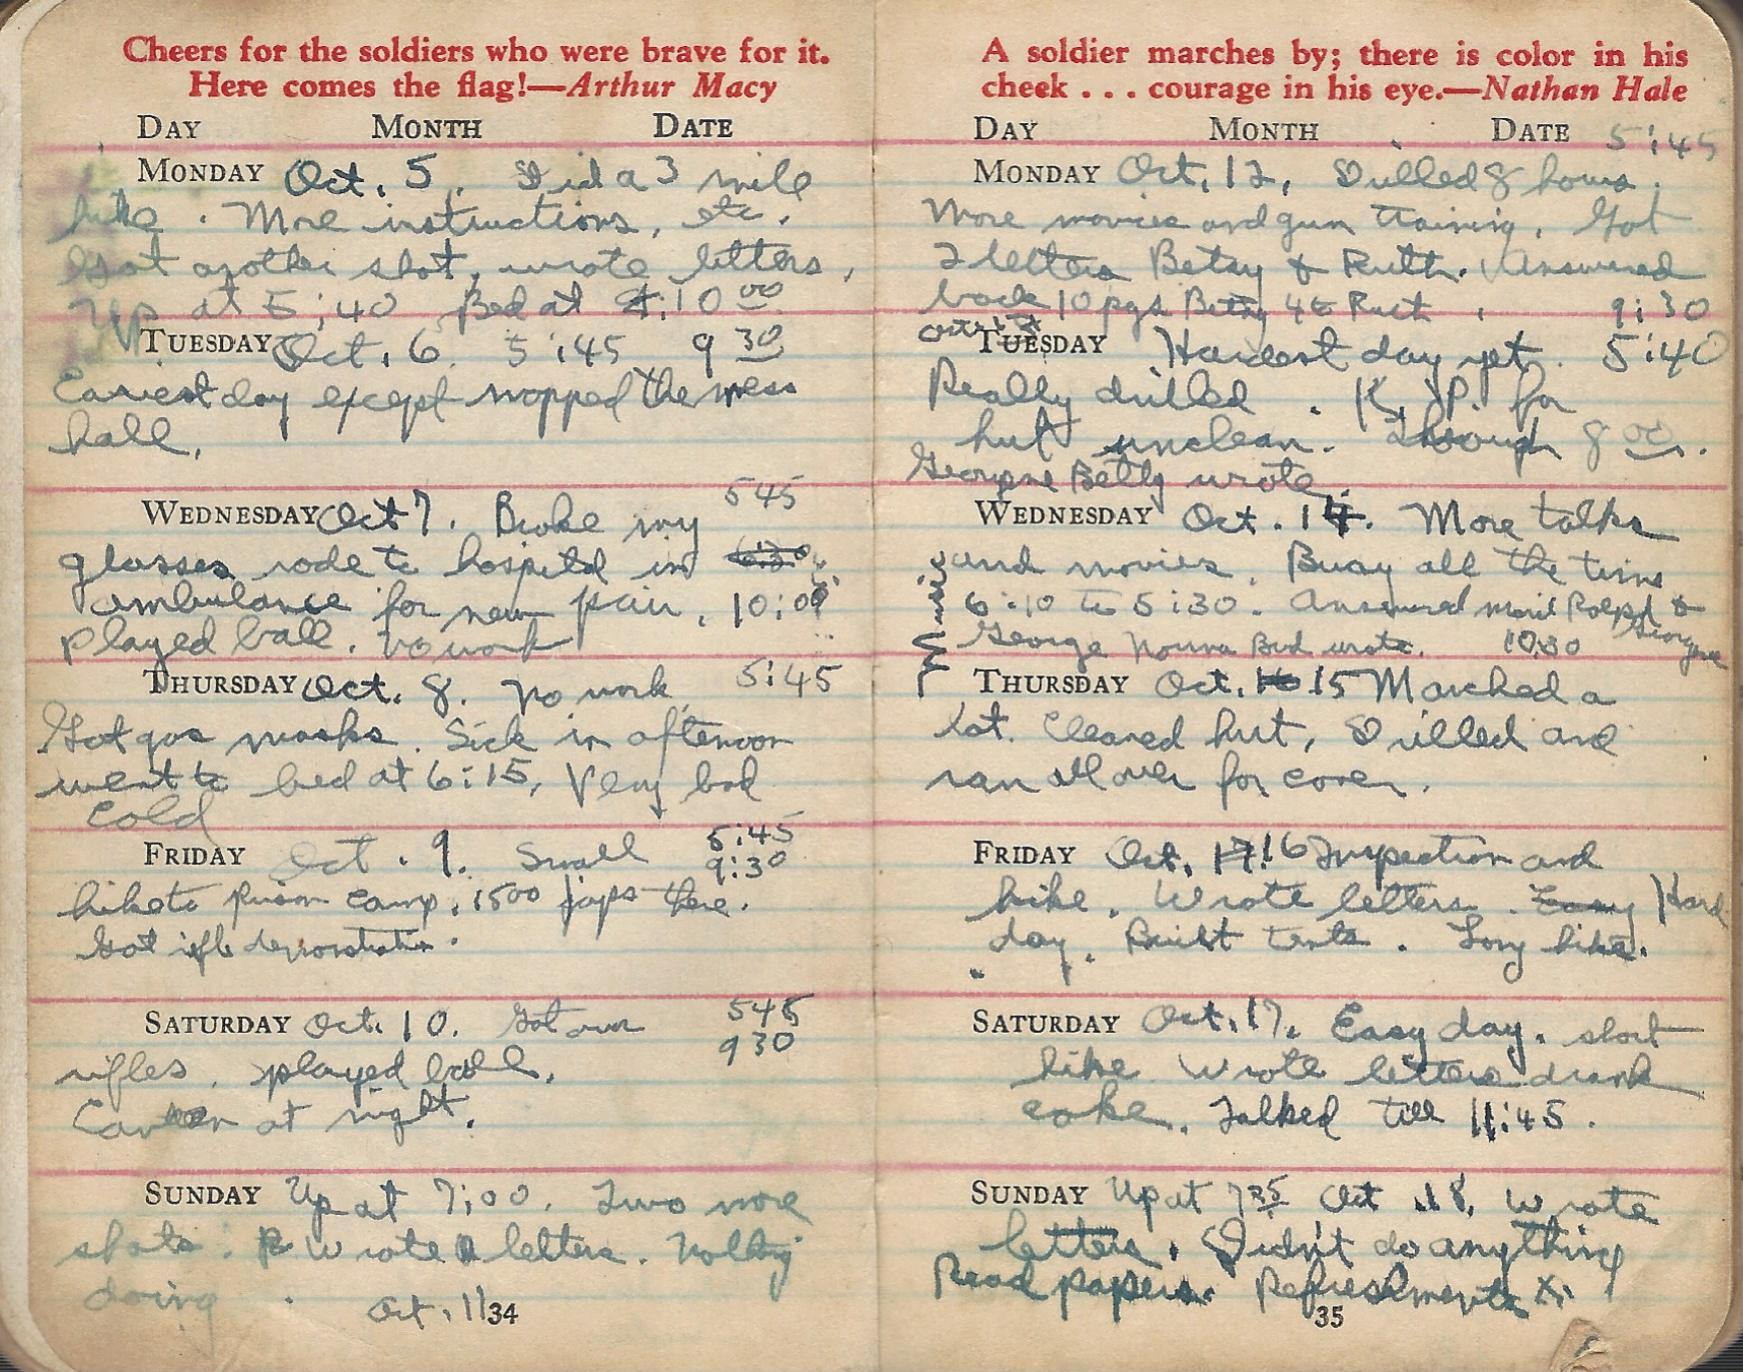 Cheers for the soldiers who were brave for it.
Here comes the flag!—Arthur Macy
DAY MONTH DATE
MONDAY Oct. 5. Did a 3 mile
hike. More instructions, etc.
Got another shot, wrote letters,
Up at 5:40 Bed at 10 00
TUESDAY Oct. 6. 5:45 9 30
Easiest day except mopped the mess
hall.
545
WEDNESDAY Oct 7. Broke my
glasses rode to hospital in 6:30
ambulance for new pair. 10:00
played ball. No work
THURSDAY Oct. 8. No work 5:45
Got gas masks. Sick in afternoon
went to bed at 6:15, Very bad
Cold
5:45
FRIDAY Oct. 9. Small 9:30
hike to prison camp. 1500 japs there.
Got rifle demonstration.
545
SATURDAY Oct. 10. Got our 930
rifles. played ball.
at night.
SUNDAY Up at 7:00. Two more
shots. Wrote letters. Nothing
doing. Oct. 11
34
A soldier marches by; there is color in his
cheek . . . courage in his eye.—Nathan Hale
DAY MONTH DATE 5:45
MONDAY Oct. 12, Drilled 8 hours.
More movies and gun training. Got
2 letters Betsy & Ruth. Answered
back 10 pgs Betsy 4 to Ruth. 9:30
Oct. 13
TUESDAY Hardest day yet. 5:40
Really drilled. K.P. for
hut unclean. Through 8 00.
Georgene Betty wrote.
WEDNESDAY Oct. 14. More talks
and movies. Busy all the time
6:10 to 5:30. Answered &
Georgene
George wrote. 10:30
Movie
THURSDAY Oct. 16 15 Marched a
lot. Cleaned hut, Drilled and
ran all over for cover.
FRIDAY Oct. 17. 16 Inspection and
hike. Wrote letters. Easy Hard
day. Built tents. Long hike.
SATURDAY Oct. 17. Easy day. short
hike. Wrote letters drank
coke. Talked till 11:45.
SUNDAY Up at 7 35 Oct 18. Wrote
letters. Didn't do anything
Read papers. Refreshments
35